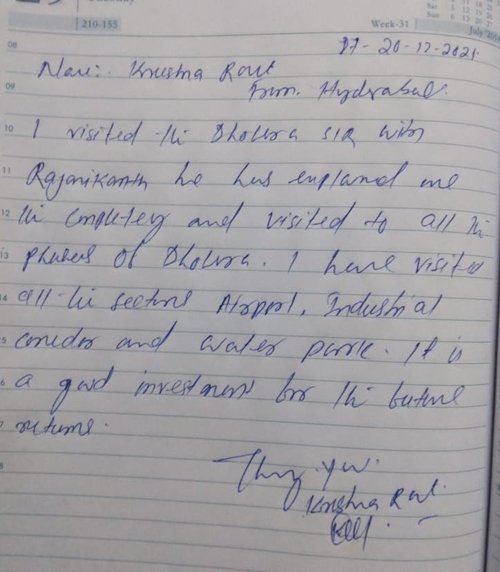 210-155
Week-31
July
08
Dt- 20-12-2021
Name:. Krushna Rout
09
From. Hyderabad.
10 I visited the Dholera SIR with
11 Rajanikanth he has explaned me
12 the cmpletey and visited to all the
13 phases of Dholera. I have visited
14 all the sectors Airport, Industrial
5 coredor and water park. It is
6 a good investment for the future
7 returns.
8
Thank you.
Krushna Rout.